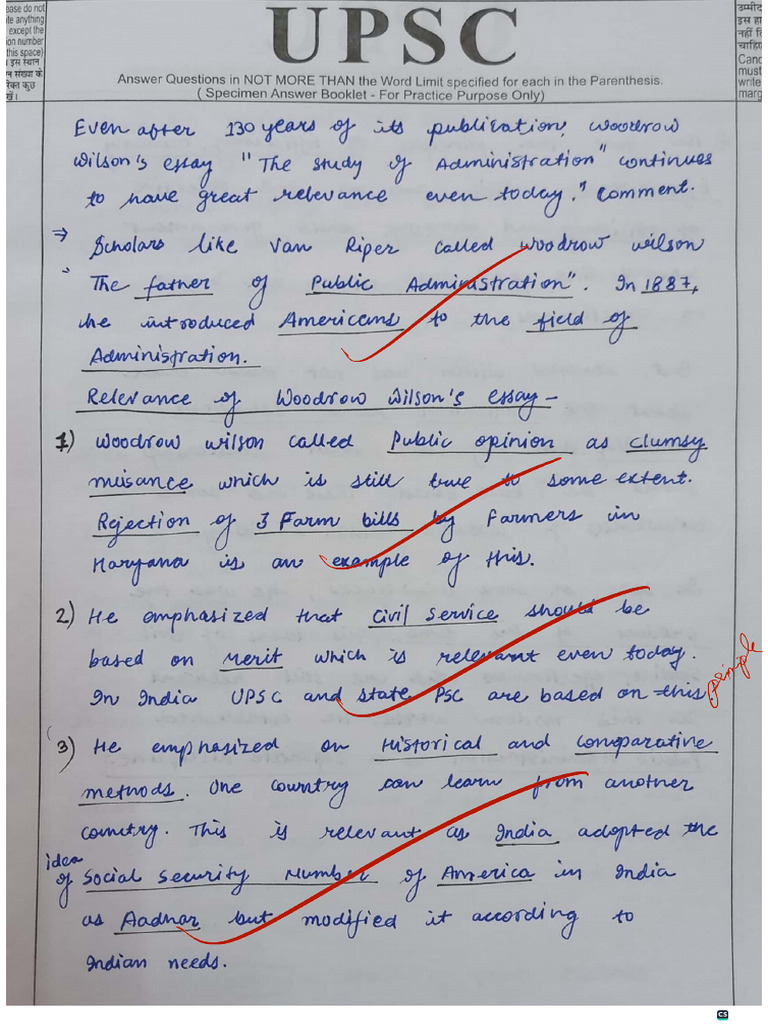 ease do not
te anything
except the
ion number
this space)
इस स्थान
न संख्या के
रिक्त कुछ
खें।
UPSC
Answer Questions in NOT MORE THAN the Word Limit specified for each in the Parenthesis.
( Specimen Answer Booklet - For Practice Purpose Only)
उम्मीद
इस हा
नहीं लि
चाहिए
Canc
must
write
marg
Even after 130 years of its publication, Woodrow
Wilson's essay "The study of Administration" continues
to have great relevance even today." Comment.
⇒ Scholars like Van Riper called Woodrow Wilson
The father of Public Administration". In 1887,
he introduced Americans to the field of
Administration.
Relevance of Woodrow Wilson's essay -
1) Woodrow Wilson called Public opinion as clumsy
nuisance which is still true to some extent.
Rejection of 3 Farm bills by farmers in
Haryana is an example of this.
2) He emphasized that Civil Service should be
based on merit which is relevant even today.
In India UPSC and State PSC are based on this.
simple
3) He emphasized on Historical and comparative
methods. One country can learn from another
country. This is relevant as India adopted the
idea
of Social Security Number of America in India
as Aadhar but modified it according to
Indian needs.
CS